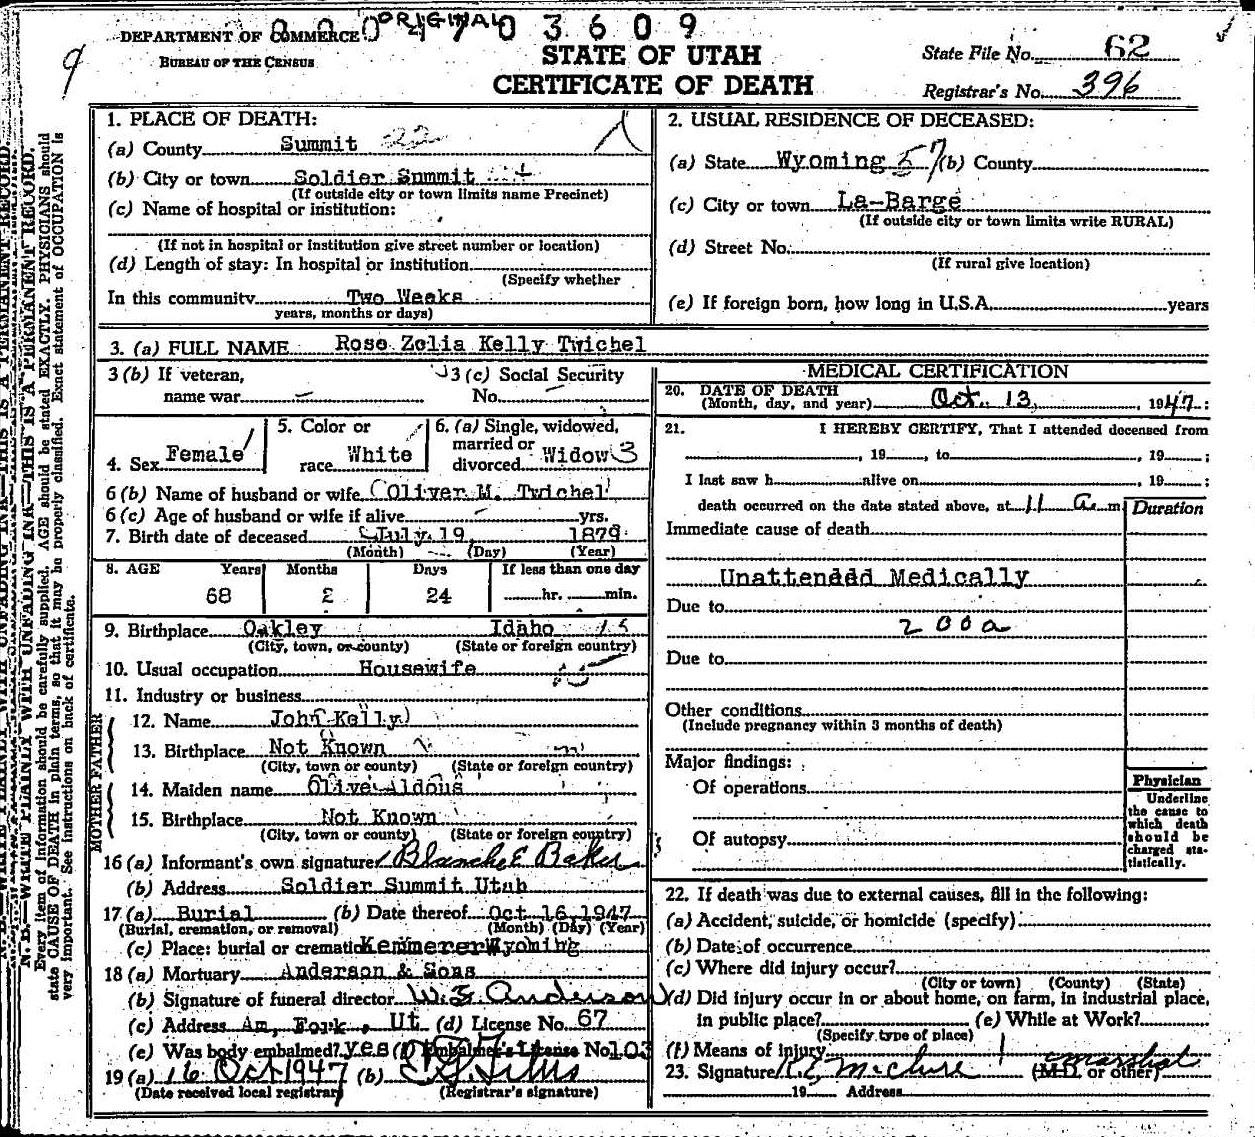 ORIGINAL
DEPARTMENT OF COMMERCE 0 3 6 0 9
BUREAU OF THE CENSUS
STATE OF UTAH
CERTIFICATE OF DEATH
State File No. 62
Registrar's No. 396
9
N. B.—WRITE PLAINLY WITH UNFADING INK—THIS IS A PERMANENT RECORD.
Every item of information should be carefully supplied. AGE should be stated EXACTLY. PHYSICIANS should
state CAUSE OF DEATH in plain terms, so that it may be properly classified. Exact statement of OCCUPATION is
very important. See instructions on back of certificate.
1. PLACE OF DEATH:
(a) County Summit 22
(b) City or town Soldier Snmmit
(If outside city or town limits name Precinct)
(c) Name of hospital or institution:
(If not in hospital or institution give street number or location)
(d) Length of stay: In hospital or institution
(Specify whether
In this community Two Weeks
years, months or days)
2. USUAL RESIDENCE OF DECEASED:
(a) State Wyoming 57 (b) County
(c) City or town La-Barge
(If outside city or town limits write RURAL)
(d) Street No.
(If rural give location)
(e) If foreign born, how long in U.S.A. years
3. (a) FULL NAME Rose Zelia Kelly Twichel
3 (b) If veteran,
name war —
3 (c) Social Security
No. —
4. Sex Female
5. Color or
race White
6. (a) Single, widowed,
married or
divorced Widow 3
6 (b) Name of husband or wife (Oliver M. Twichel
6 (c) Age of husband or wife if alive — yrs.
7. Birth date of deceased July 19 1879
(Month) (Day) (Year)
8. AGE Years Months Days If less than one day
68 2 24 hr. min.
9. Birthplace Oakley Idaho
(City, town, or county) (State or foreign country)
10. Usual occupation Housewife
11. Industry or business
FATHER
12. Name John Kelly
13. Birthplace Not Known
(City, town or county) (State or foreign country)
MOTHER
14. Maiden name Olive Aldous
15. Birthplace Not Known
(City, town or county) (State or foreign country)
16 (a) Informant's own signature Blanche E Baker
(b) Address Soldier Summit Utah
17 (a) Burial (b) Date thereof Oct 16,1947
(Burial, cremation, or removal) (Month) (Day) (Year)
(c) Place: burial or cremation Kemmerer Wyoming
18 (a) Mortuary Anderson & Sons
(b) Signature of funeral director Anderson
(c) Address Am, Fork, Ut (d) License No. 67
(e) Was body embalmed? yes (f) Embalmer's License No. 103
19 (a) 16 Oct 1947 (b)
(Date received local registrar) (Registrar's signature)
MEDICAL CERTIFICATION
20. DATE OF DEATH
(Month, day, and year) Oct. 13, , 1947 :
21. I HEREBY CERTIFY, That I attended deceased from
, 19 , to , 19 ;
I last saw h alive on , 19 ;
death occurred on the date stated above, at 11 a m.
Duration
Immediate cause of death
Unattended Medically
Due to
200a
Due to
Other conditions
(Include pregnancy within 3 months of death)
Major findings:
Of operations
Of autopsy
Physician
Underline
the cause to
which death
should be
charged sta-
tistically.
22. If death was due to external causes, fill in the following:
(a) Accident, suicide, or homicide (specify)
(b) Date of occurrence
(c) Where did injury occur?
(City or town) (County) (State)
(d) Did injury occur in or about home, on farm, in industrial place,
in public place? (e) While at Work?
(Specify type of place)
(f) Means of injury
23. Signature McClure (M.D. or other) marshal
19 Address